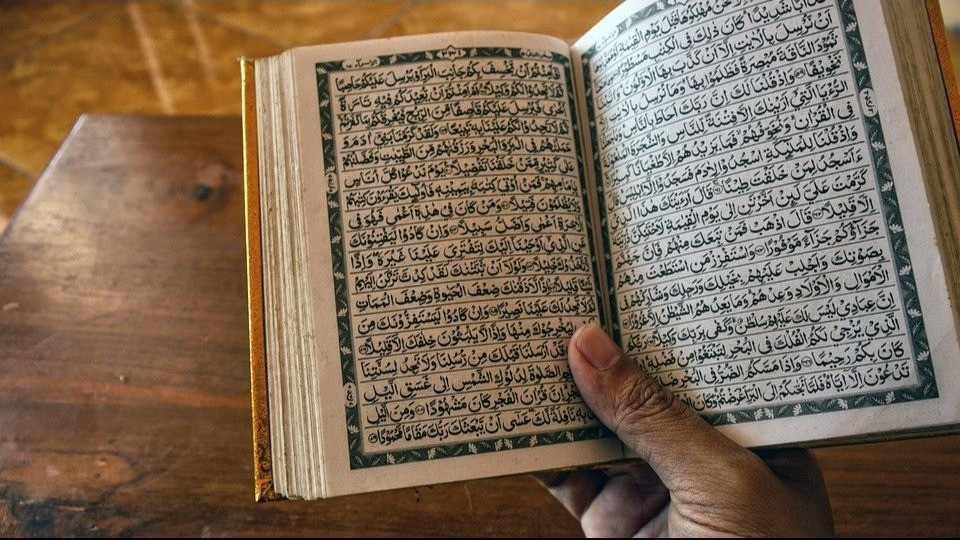 نَحْنُ مُهْلِكُوْهَا قَبْلَ يَوْمِ الْقِيٰمَةِ
عَذَابًا شَدِيْدًا كَانَ ذٰلِكَ فِى الْكِتٰبِ مَسْطُوْرًا
اَنْ نُّرْسِلَ بِالْاٰيٰتِ اِلَّآ اَنْ كَذَّبَ بِهَا الْاَوَّلُوْنَ
ثَمُوْدَ النَّاقَةَ مُبْصِرَةً فَظَلَمُوْا بِهَا وَمَا نُرْسِلُ بِالْاٰيٰتِ
تَخْوِيْفًا وَاِذْ قُلْنَا لَكَ اِنَّ رَبَّكَ اَحَاطَ بِالنَّاسِ
الرُّءْيَا الَّتِيْٓ اَرَيْنٰكَ اِلَّا فِتْنَةً لِّلنَّاسِ وَالشَّجَرَةَ
فِى الْقُرْاٰنِ وَنُخَوِّفُهُمْ فَمَا يَزِيْدُهُمْ اِلَّا طُغْيَانًا
وَاِذْ قُلْنَا لِلْمَلٰٓئِكَةِ اسْجُدُوْا لِاٰدَمَ فَسَجَدُوْٓا اِلَّآ اِبْلِيْسَ
ءَاَسْجُدُ لِمَنْ خَلَقْتَ طِيْنًا قَالَ اَرَءَيْتَكَ هٰذَا الَّذِيْ
كَرَّمْتَ عَلَيَّ لَئِنْ اَخَّرْتَنِ اِلٰى يَوْمِ الْقِيٰمَةِ لَاَحْتَنِكَنَّ
اِلَّا قَلِيْلًا قَالَ اذْهَبْ فَمَنْ تَبِعَكَ مِنْهُمْ فَاِنَّ
جَزَآؤُكُمْ جَزَآءً مَّوْفُوْرًا وَاسْتَفْزِزْ مَنِ اسْتَطَعْتَ
بِصَوْتِكَ وَاَجْلِبْ عَلَيْهِمْ بِخَيْلِكَ وَرَجِلِكَ وَشَارِكْهُمْ
الْاَمْوَالِ وَالْاَوْلَادِ وَعِدْهُمْ وَمَا يَعِدُهُمُ الشَّيْطٰنُ
اِنَّ عِبَادِيْ لَيْسَ لَكَ عَلَيْهِمْ سُلْطٰنٌ وَكَفٰى بِرَبِّكَ وَكِيْلًا
الَّذِيْ يُزْجِيْ لَكُمُ الْفُلْكَ فِى الْبَحْرِ لِتَبْتَغُوْا مِنْ فَضْلِهٖ
كَانَ بِكُمْ رَحِيْمًا وَاِذَا مَسَّكُمُ الضُّرُّ فِى الْبَحْرِ
تَدْعُوْنَ اِلَّآ اِيَّاهُ فَلَمَّا نَجّٰىكُمْ اِلَى الْبَرِّ اَعْرَضْتُمْ وَكَانَ
اَفَاَمِنْتُمْ اَنْ يَّخْسِفَ بِكُمْ جَانِبَ الْبَرِّ اَوْ يُرْسِلَ عَلَيْكُمْ حَاصِبًا
ثُمَّ لَا تَجِدُوْا لَكُمْ وَكِيْلًا اَمْ اَمِنْتُمْ اَنْ يُّعِيْدَكُمْ فِيْهِ تَارَةً
اُخْرٰى فَيُرْسِلَ عَلَيْكُمْ قَاصِفًا مِّنَ الرِّيْحِ فَيُغْرِقَكُمْ بِمَا كَفَرْتُمْ
ثُمَّ لَا تَجِدُوْا لَكُمْ عَلَيْنَا بِهٖ تَبِيْعًا وَلَقَدْ كَرَّمْنَا بَنِيْٓ اٰدَمَ وَ
حَمَلْنٰهُمْ فِى الْبَرِّ وَالْبَحْرِ وَرَزَقْنٰهُمْ مِّنَ الطَّيِّبٰتِ وَفَضَّلْنٰهُمْ
عَلٰى كَثِيْرٍ مِّمَّنْ خَلَقْنَا تَفْضِيْلًا يَوْمَ نَدْعُوْا كُلَّ اُنَاسٍ
بِاِمَامِهِمْ فَمَنْ اُوْتِيَ كِتٰبَهٗ بِيَمِيْنِهٖ فَاُولٰٓئِكَ يَقْرَءُوْنَ كِتٰبَهُمْ
وَلَا يُظْلَمُوْنَ فَتِيْلًا وَمَنْ كَانَ فِيْ هٰذِهٖٓ اَعْمٰى فَهُوَ فِى
الْاٰخِرَةِ اَعْمٰى وَاَضَلُّ سَبِيْلًا وَاِنْ كَادُوْا لَيَفْتِنُوْنَكَ
عَنِ الَّذِيْٓ اَوْحَيْنَآ اِلَيْكَ لِتَفْتَرِيَ عَلَيْنَا غَيْرَهٗ وَاِذًا
لَّاتَّخَذُوْكَ خَلِيْلًا وَلَوْلَآ اَنْ ثَبَّتْنٰكَ لَقَدْ كِدْتَّ تَرْكَنُ اِلَيْهِمْ
شَيْـًٔا قَلِيْلًا اِذًا لَّاَذَقْنٰكَ ضِعْفَ الْحَيٰوةِ وَضِعْفَ الْمَمَاتِ
ثُمَّ لَا تَجِدُ لَكَ عَلَيْنَا نَصِيْرًا وَاِنْ كَادُوْا لَيَسْتَفِزُّوْنَكَ مِنَ
لِيُخْرِجُوْكَ مِنْهَا وَاِذًا لَّا يَلْبَثُوْنَ خِلٰفَكَ اِلَّا قَلِيْلًا
قَدْ اَرْسَلْنَا قَبْلَكَ مِنْ رُّسُلِنَا وَلَا تَجِدُ لِسُنَّتِنَا
الصَّلٰوةَ لِدُلُوْكِ الشَّمْسِ اِلٰى غَسَقِ الَّيْلِ
اِنَّ قُرْاٰنَ الْفَجْرِ كَانَ مَشْهُوْدًا وَمِنَ الَّيْلِ
بِهٖ نَافِلَةً لَّكَ عَسٰٓى اَنْ يَّبْعَثَكَ رَبُّكَ مَقَامًا مَّحْمُوْدًا